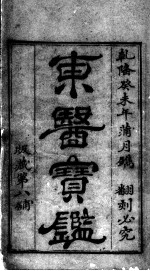 乾隆癸未年蒲月鐫　翻刻必究
東醫寶鑑
版藏第八